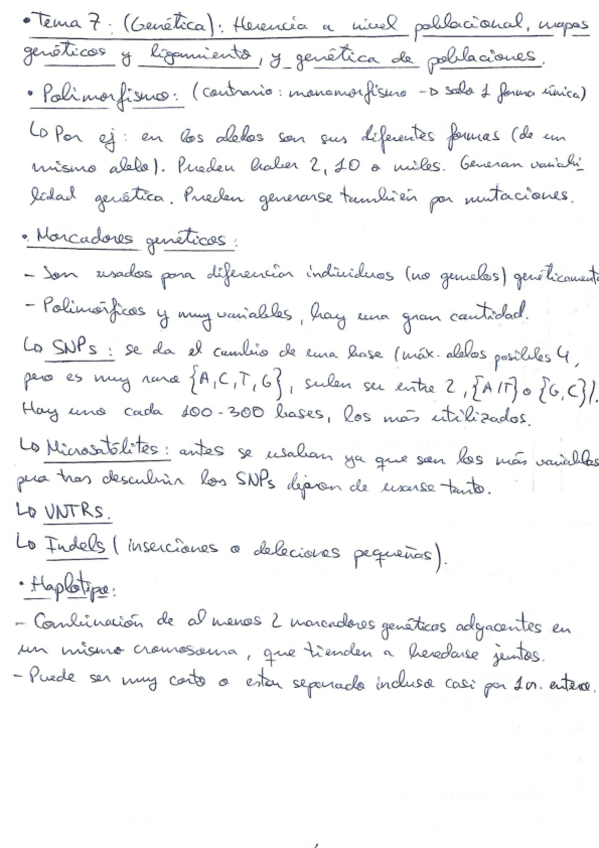 • Tema 7: (Genética): Herencia a nivel poblacional, mapas
genéticos y ligamiento, y genética de poblaciones.
• Polimorfismo: (contrario: monomorfismo → solo 1 forma única)
↳ Por ej: en los alelos son sus diferentes formas (de un
mismo alelo). Pueden haber 2, 10 o miles. Generan variabi-
lidad genética. Pueden generarse también por mutaciones.
• Marcadores genéticos:
- Son usados para diferenciar individuos (no gemelos) genéticamente
- Polimórficos y muy variables, hay una gran cantidad.
↳ SNPs: se da el cambio de una base (máx. alelos posibles 4,
pero es muy raro {A,C,T,G}, suelen ser entre 2, {A/T} o {G,C}).
Hay uno cada 100-300 bases, los más utilizados.
↳ Microsatélites: antes se usaban ya que son los más variables
pero tras descubrir los SNPs dejaron de usarse tanto.
↳ VNTRs.
↳ Indels (inserciones o deleciones pequeñas).
• Haplotipo:
- Combinación de al menos 2 marcadores genéticos adyacentes en
un mismo cromosoma, que tienden a heredarse juntos.
- Puede ser muy corto o estar separado incluso casi por 1 cr. entero.